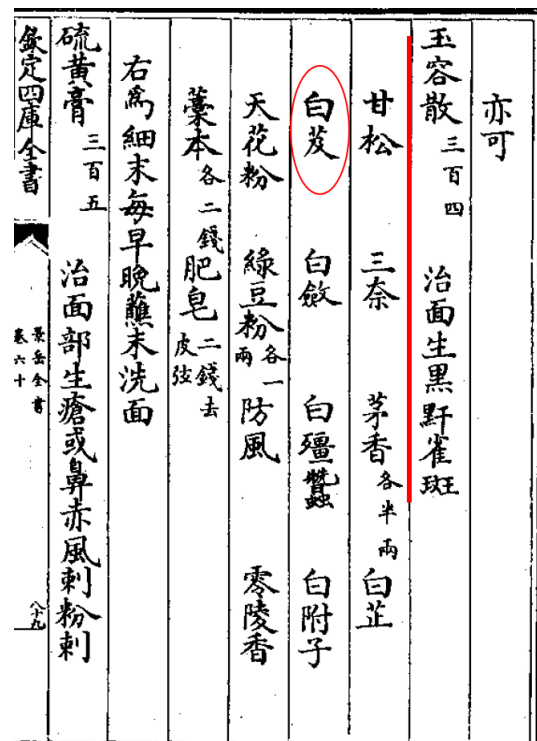 亦可
玉容散三百四 治面生黑䵟雀斑
甘松 三奈 茅香各半兩 白芷
白芨 白斂 白殭蠶 白附子
天花粉 綠豆粉各一兩 防風 零陵香
藁本各二錢 肥皂二錢去皮弦
右為細末每早晚蘸末洗面
硫黃膏三百五 治面部生瘡或鼻赤風刺粉刺
欽定四庫全書
景岳全書
卷六十
八十九